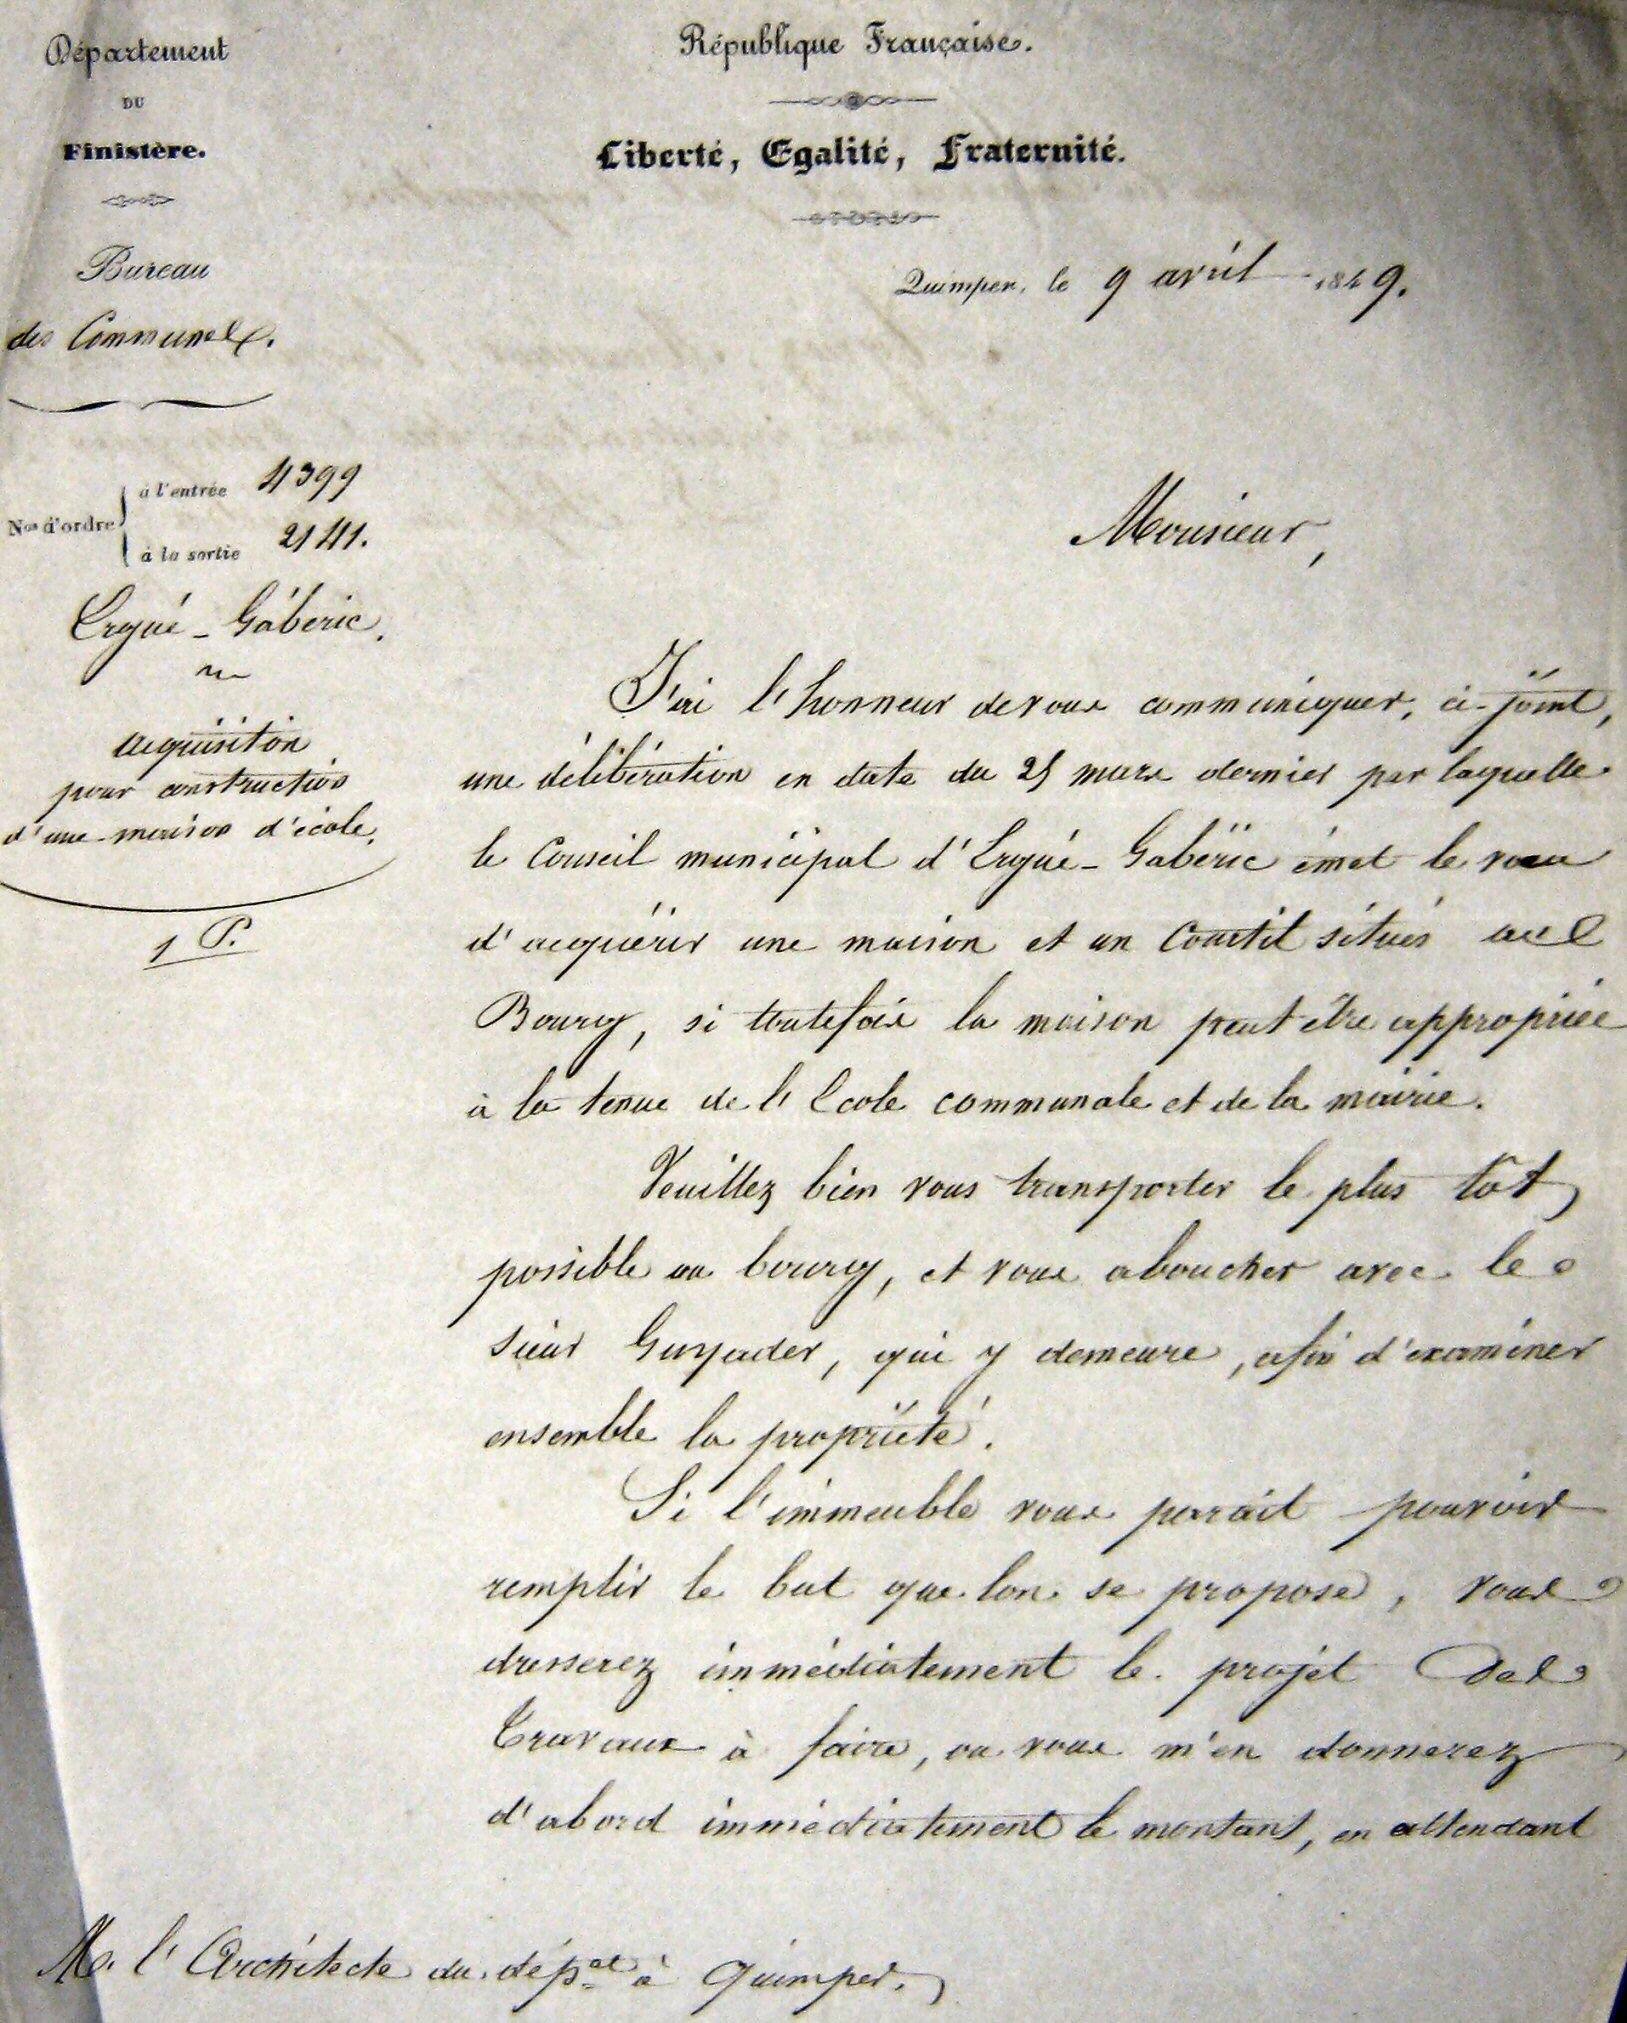 Département
DU
Finistère.
République Française.
Liberté, Egalité, Fraternité.
Bureau
des Communes.
Quimper, le 9 avril 1849.
Nos d'ordre
à l'entrée 4399
à la sortie 2141.
Ergué-Gabéric.
acquisition
pour construction
d'une maison d'école.
1 P.
Monsieur,
J'ai l'honneur de vous communiquer, ci-joint,
une délibération en date du 25 mars dernier par laquelle
le Conseil municipal d'Ergué-Gabéric émet le vœu
d'acquérir une maison et un Courtil situés au
Bourg, si toutefois la maison peut être appropriée
à la tenue de l'Ecole communale et de la mairie.
Veuillez bien vous transporter le plus tôt
possible au bourg, et vous aboucher avec le
sieur Guyader, qui y demeure, afin d'examiner
ensemble la propriété.
Si l'immeuble vous parait pouvoir
remplir le but que lon se propose, vous
dresserez immédiatement le projet des
Travaux à faire, ou vous m'en donnerez
d'abord immédiatement le montant, en attendant
M. l'Architecte du dépal à Quimper.